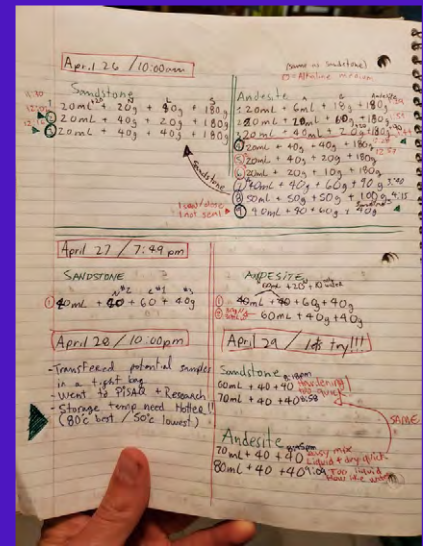 April 26 / 10:00am
Sandstone
20mL + 20g + 80g + 180g
20mL + 40g + 20g + 180g
20mL + 40g + 40g + 180g
Sandstone
(same as sandstone)
= Alkaline medium
Andesite
20mL + 6mL + 18g + 180g
20mL + 20mL + 60g + 180g
20mL + 40mL + 20g + 180g
20mL + 40g + 40g + 180g
20mL + 40g + 20g + 180g
20mL + 20g + 10g + 180g
40mL + 40g + 60g + 90g 3:40
50mL + 50g + 50g + 100g 4:15
40mL + 40 + 60g + 40g
April 27 / 7:49 pm
SANDSTONE
① 40mL + 40 + 60 + 40g
ANDESITE
① 40mL + 40 + 60g + 40g
60mL + 40g + 40
April 28 / 10:00pm
-Transferred potential samples
in a tight bag
- Went to PISAQ + Research
- Storage temp need Hotter!!
(80°c best / 50°c lowest)
April 29 / let's try!!!
Sandstone 8:18pm
60mL + 40 + 40 hardening
too quick
70mL + 40 + 40 8:58
SAME
Andesite
70mL + 40 + 40 easy mix
Liquid + dry quick
80mL + 40 + 40 9:09 Too liquid